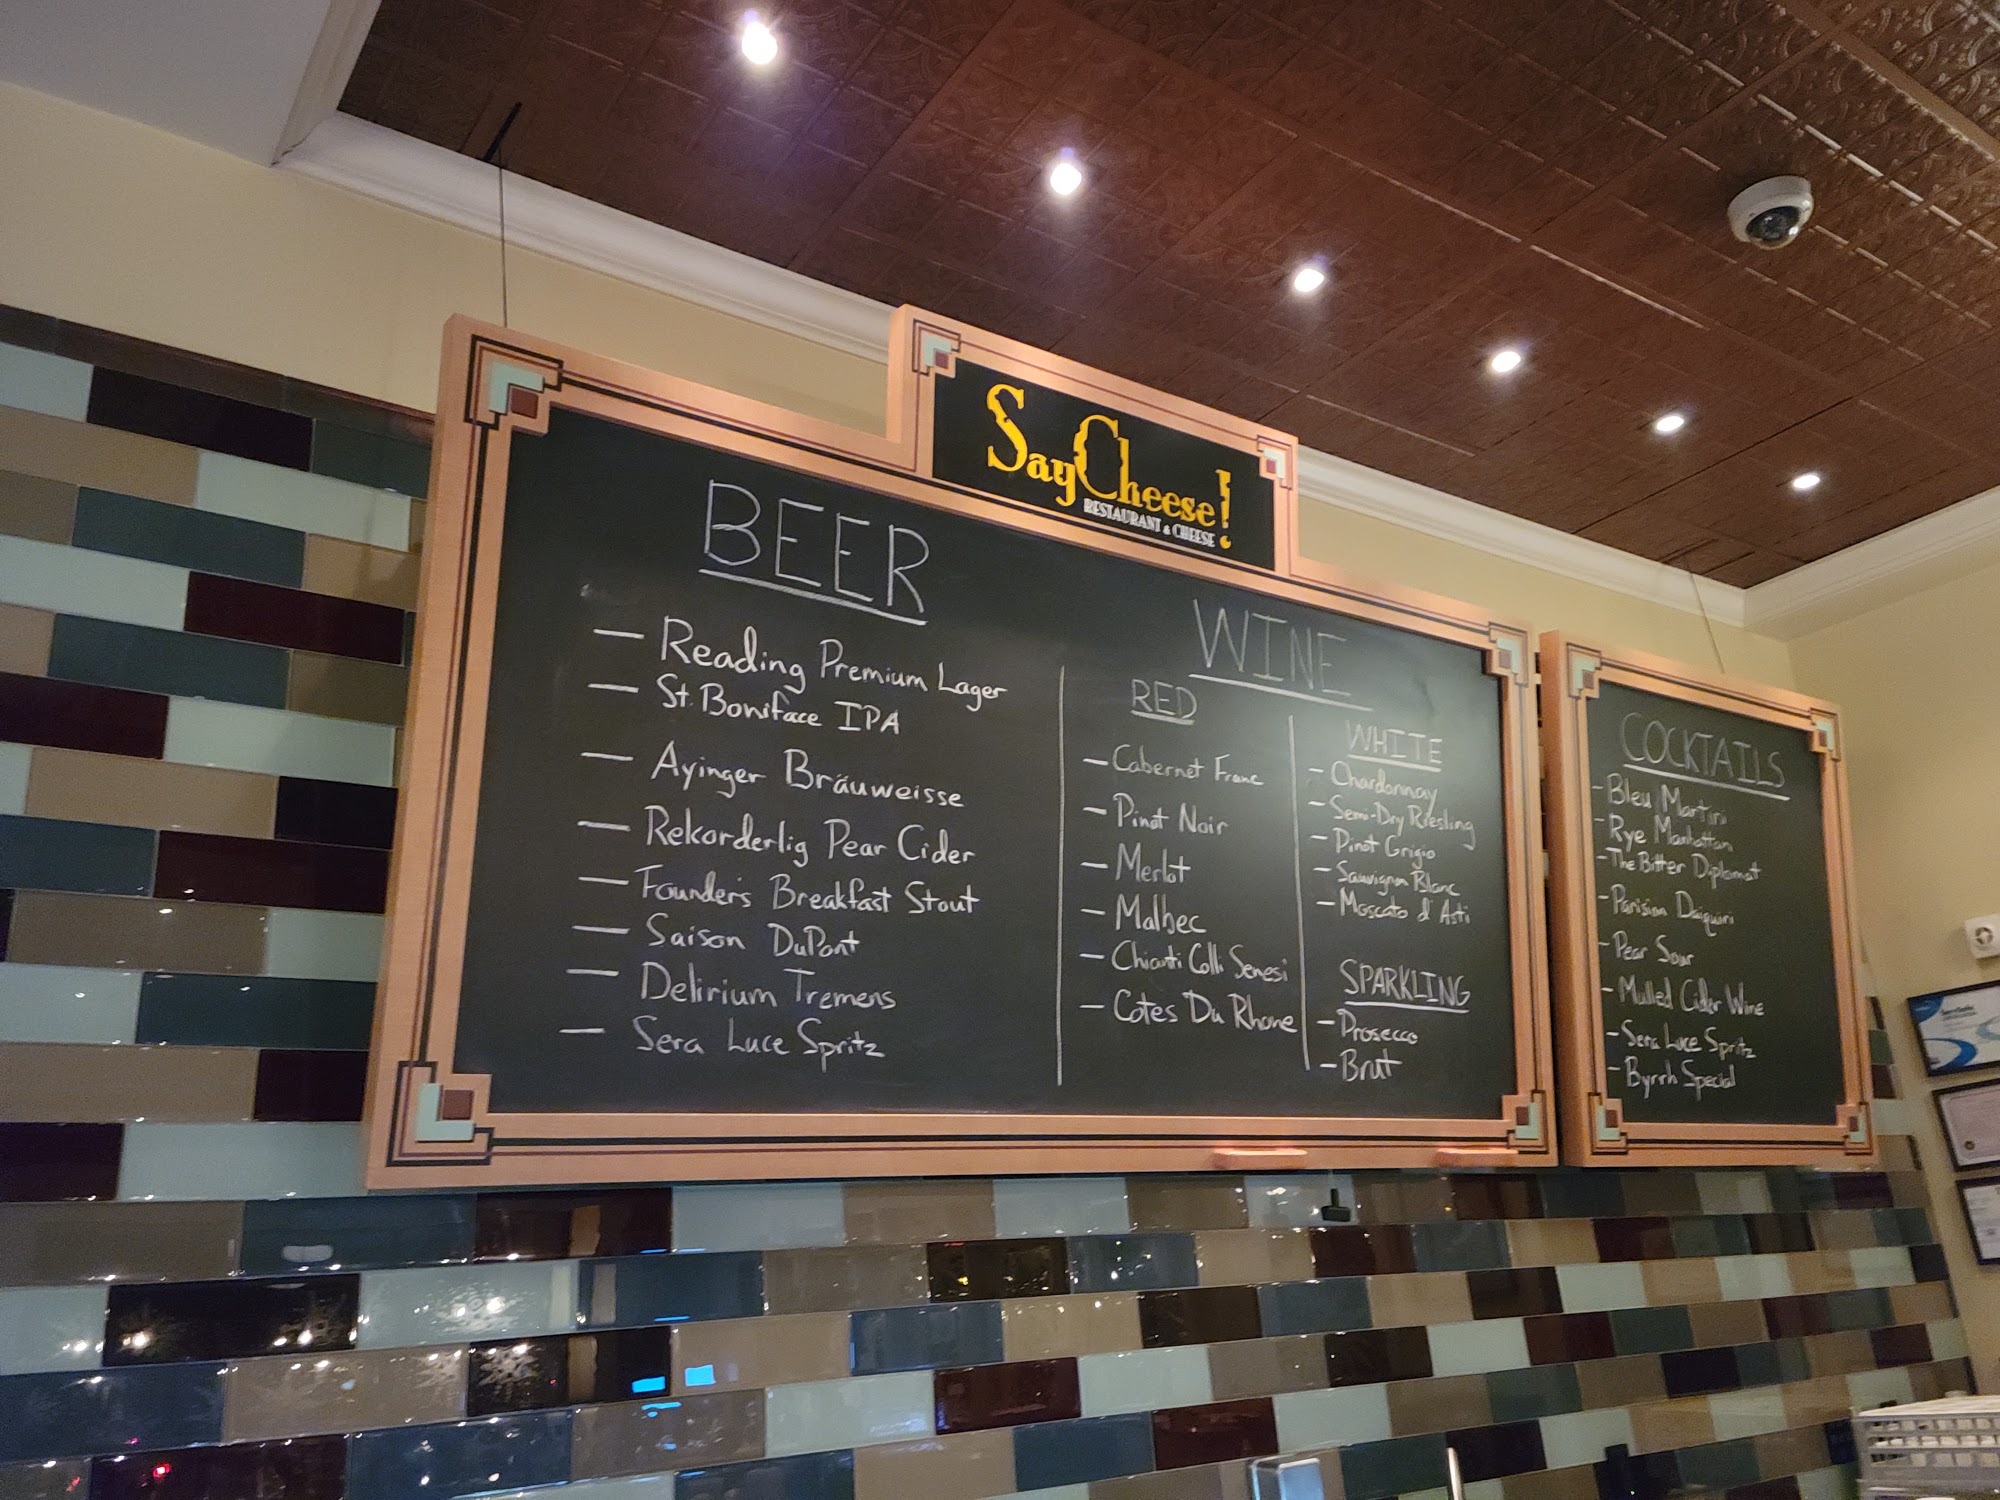 SayCheese!
RESTAURANT & CHEESE
BEER
— Reading Premium Lager
— St. Boniface IPA
— Ayinger Bräuweisse
— Rekorderlig Pear Cider
— Founder's Breakfast Stout
— Saison DuPont
— Delirium Tremens
— Sera Luce Spritz
WINE
RED
— Cabernet Franc
— Pinot Noir
— Merlot
— Malbec
— Chianti Colli Senesi
— Cotes Du Rhone
WHITE
- Chardonnay
- Semi-Dry Riesling
- Pinot Grigio
- Sauvignon Blanc
- Moscato d'Asti
SPARKLING
- Prosecco
- Brut
COCKTAILS
- Bleu Martini
- Rye Manhattan
- The Bitter Diplomat
- Parisian Daiquiri
- Pear Sour
- Mulled Cider Wine
- Sera Luce Spritz
- Byrrh Special